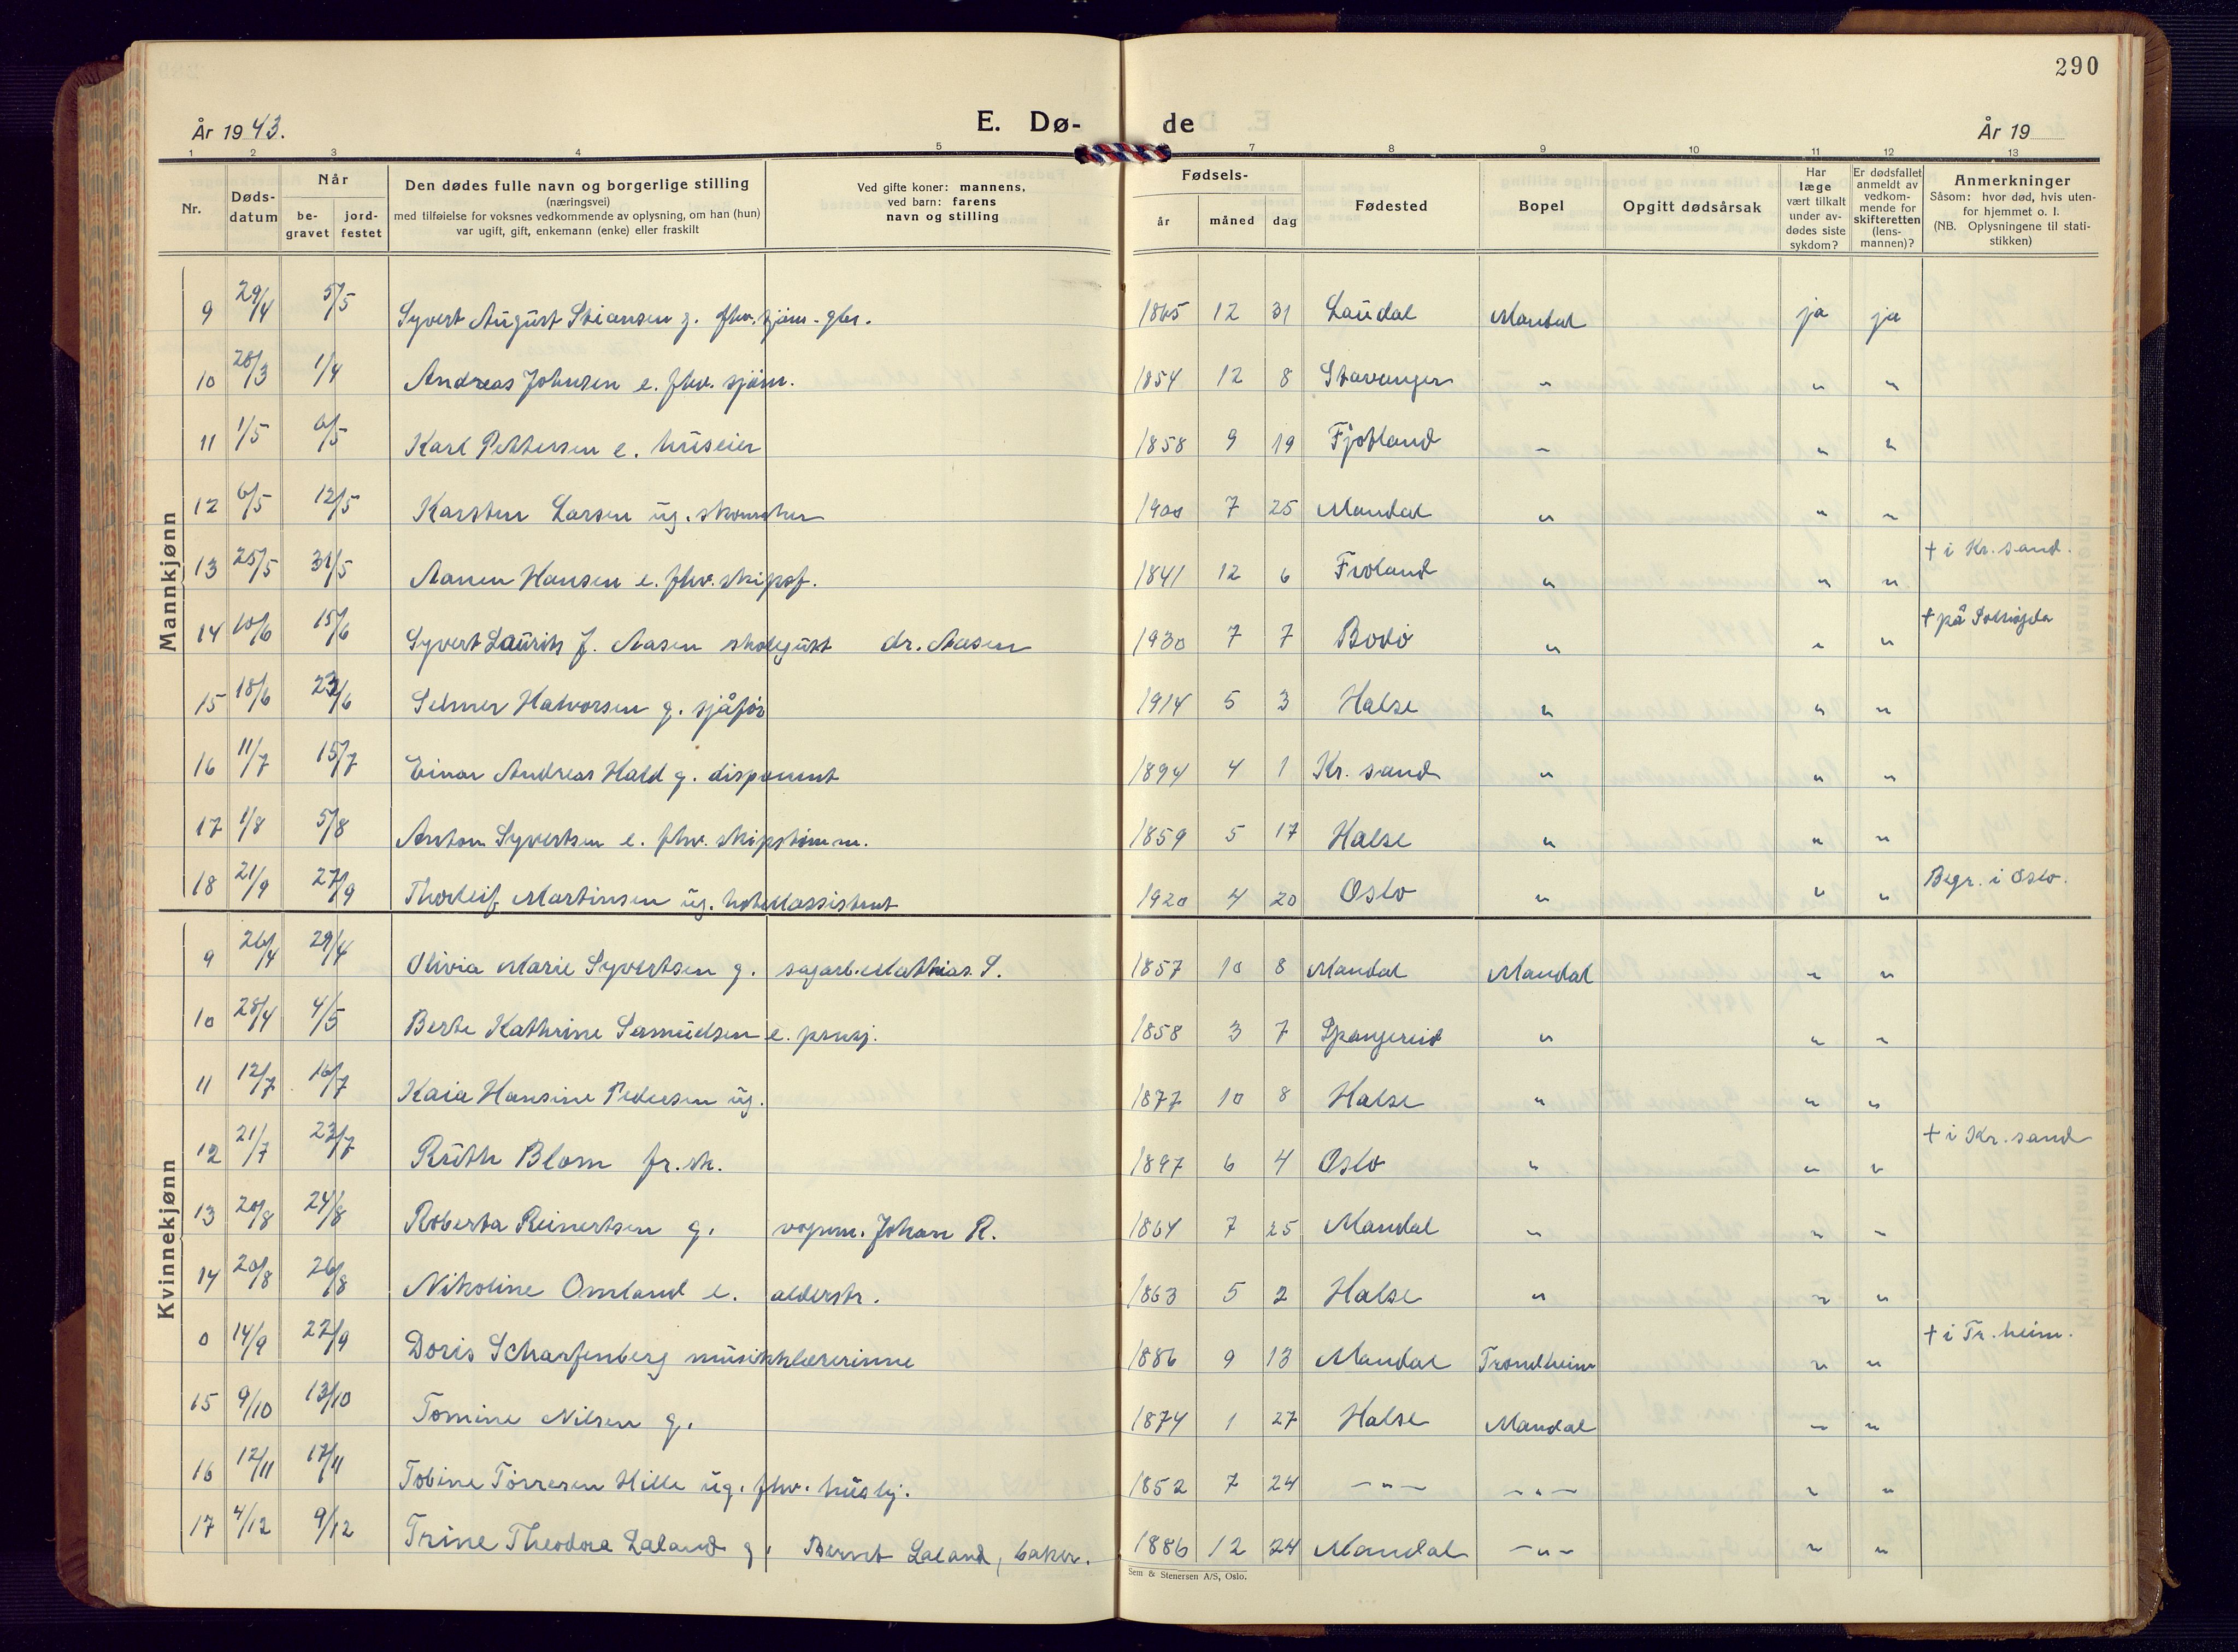 290
År 1943.
E. Dø-
de
År 19
1 2 3 4 5 7 8 9 10 11 12 13
Nr.
Døds-
datum
Når
be-
gravet
jord-
festet
Den dødes fulle navn og borgerlige stilling
(næringsvei)
med tilføielse for voksnes vedkommende av oplysning, om han (hun)
var ugift, gift, enkemann (enke) eller fraskilt
Ved gifte koner: mannens,
ved barn: farens
navn og stilling
Fødsels-
år måned dag
Fødested
Bopel
Opgitt dødsårsak
Har
læge
vært tilkalt
under av-
dødes siste
sykdom?
Er dødsfallet
anmeldt av
vedkom-
mende for
skifteretten
(lens-
mannen)?
Anmerkninger
Såsom: hvor død, hvis uten-
for hjemmet o. l.
(NB. Oplysningene til stati-
stikken)
Mannkjønn
9 29/4 5/5 Syvert August Stiansen g. fhv. sjøm. - gbr. 1865 12 31 Laudal Mandal ja ja
10 28/3 1/4 Andreas Johnsen e. fhv. sjøm. 1854 12 8 Stavanger " " "
11 1/5 6/5 Karl Pettersen e. huseier 1858 9 19 Fjotland " " "
12 6/5 12/5 Karsten Larsen ug. skomaker 1900 7 25 Mandal " " "
13 25/5 31/5 Aanen Hansen e. fhv. skipsf. 1841 12 6 Froland " " " † i Kr. sand.
14 10/6 15/6 Syvert Laurits J. Aasen skolegutt dr. Aasen 1930 7 7 Bodö " " " † på
15 18/6 23/6 Selmer Halvorsen g. sjåfør 1914 5 3 Halse " " "
16 11/7 15/7 Einar Andreas Hald g. disponent 1894 4 1 Kr. sand " " "
17 1/8 5/8 Anton Syvertsen e. fhv. skipstømm. 1859 5 17 Halse " " "
18 21/9 27/9 Thorleif Martinsen ug. hotellassistent 1920 4 20 Oslo " " " Begr. i Oslo.
Kvinnekjønn
9 26/4 29/4 Olivia Marie Syvertsen g. sagarb. Mathias S. 1857 10 8 Mandal Mandal " "
10 28/4 4/5 Berte Kathrine Samuelsen e. pensj. 1858 3 7 Spangereid " " "
11 12/7 16/7 Kaia Hansine Pedersen ug. 1877 10 8 Halse " " "
12 21/7 23/7 Ruth Blom fr.sk. 1897 6 4 Oslo " " " † i Kr. sand
13 20/8 24/8 Roberta Reinertsen g. vognm. Johan R. 1864 7 25 Mandal " " "
14 20/8 26/8 Nikoline Omland e. alderstr. 1863 5 2 Halse " " "
0 14/9 22/9 Doris Scharfenberg musikklærerinne 1886 9 13 Mandal Trondheim " " † i Tr. heim.
15 9/10 13/10 Tomine Nilsen g. 1874 1 27 Halse Mandal " "
16 12/11 17/11 Tobine Tørresen Hille ug. fhv. hushj. 1852 7 24 -"- -"- " "
17 4/12 9/12 Trine Theodora Laland g. Bernt Laland, baker. 1886 12 24 Mandal -"- " "
Sem & Stenersen A/S, Oslo.